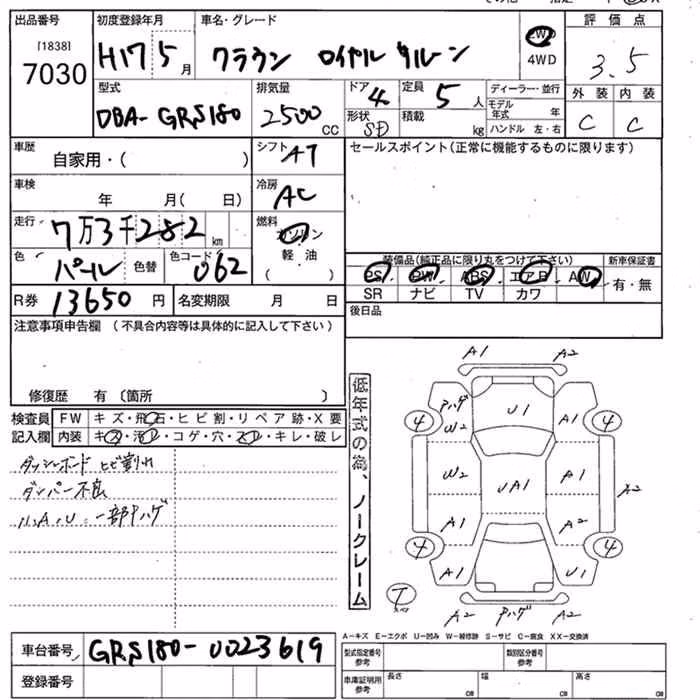 出品番号
[1838]
7030
初度登録年月
H17 5月
車名・グレード
クラウン ロイヤルサルーン
2WD
4WD
評価点
3.5
外装 内装
C C
型式
DBA-GRS180
排気量
2500 CC
ドア 4
形状 SD
定員 5人
積載 kg
ディーラー・並行
モデル年式 年
ハンドル 左・右
車歴
自家用・( )
シフト AT
セールスポイント(正常に機能するものに限ります)
車検
年 月( 日)
冷房 AC
走行
7万3千282km
燃料
ガソリン
軽油
( )
色
パール 色替
色コード 062
装備品(純正品に限り丸をつけて下さい)
PS PW ABS エアB AW
SR ナビ TV カワ
新車保証書
有・無
R券 13650円
名変期限 月 日
後日品
注意事項申告欄 (不具合内容等は具体的に記入して下さい)
修復歴 有 〔箇所 〕
検査員記入欄
FW キズ・飛石・ヒビ割・リペア跡・X要
内装 キズ・汚レ・コゲ・穴・スレ・キレ・破レ
ダッシュボード ヒビ割れ
ダンパー不良
一部ハゲ
低年式の為、ノークレーム
A1 A2
ハゲ
W2
U1
A1
4 4
W2
UA1
A1
A2
A1
A2
4 4
A1
U1
T
A2 ハゲ A2
A-キズ E-エクボ U-凹み W-修理跡 S-サビ C-腐食 XX-交換済
車台番号 GRS180-0023619
登録番号
型式指定番号 参考
類別区分番号 参考
車庫証明用 参考
長さ cm
幅 cm
高さ cm